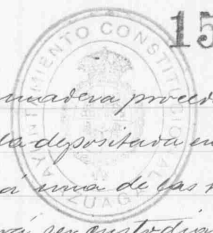 15
AYUNTAMIENTO CONSTITUCIONAL
AZUAGA
madera proced
la depositada en
á una de las
rá ser custodia